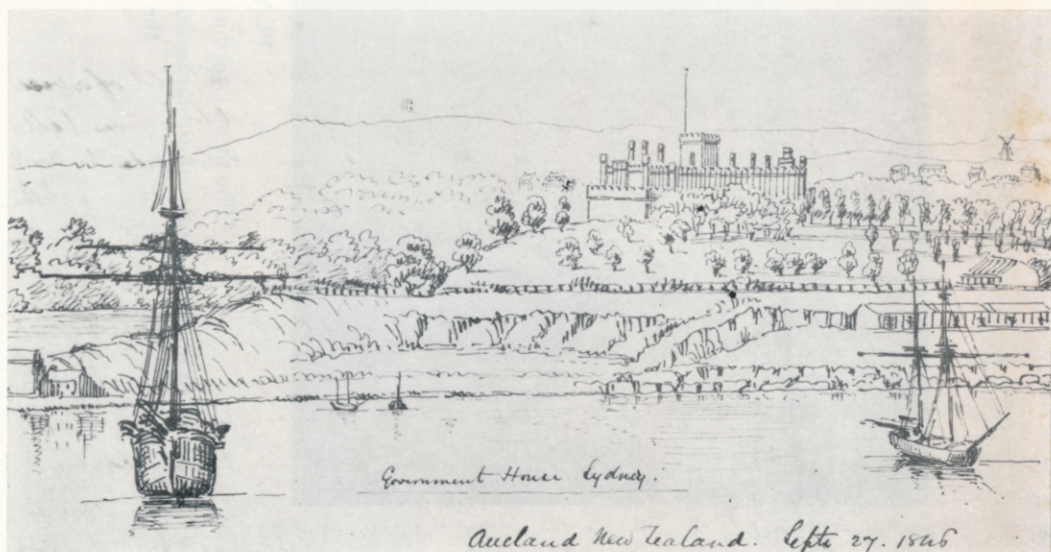 Government House Sydney.
Aucland New Zealand. Septr 27. 1846